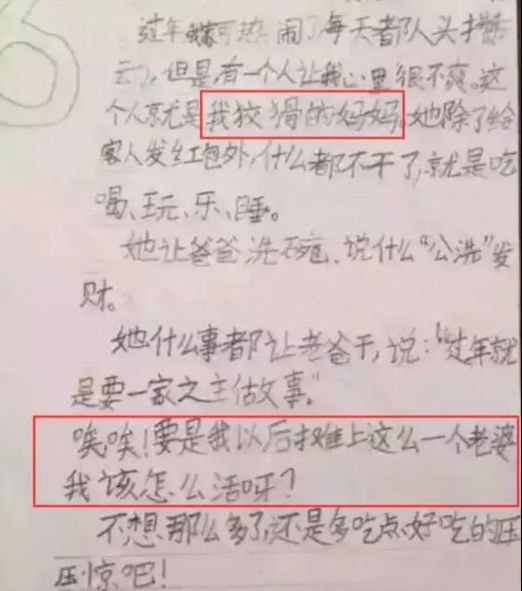 过年我家可热闹了每天都人头才攒
云力，但是有一个人让我心里很不爽。这
个人就是我狡猾的妈妈，她除了给
客人发红包外，什么都不干了，就是吃
喝、玩、乐、睡。
她让爸爸洗碗，说什么“公洗”发
财。
她什么事都让老爸干，说：“过年就
是要一家之主做事。”
唉唉！要是我以后摊上这么一个老婆
我该怎么活呀？
不想那么多了，还是多吃点好吃的压
压惊吧！